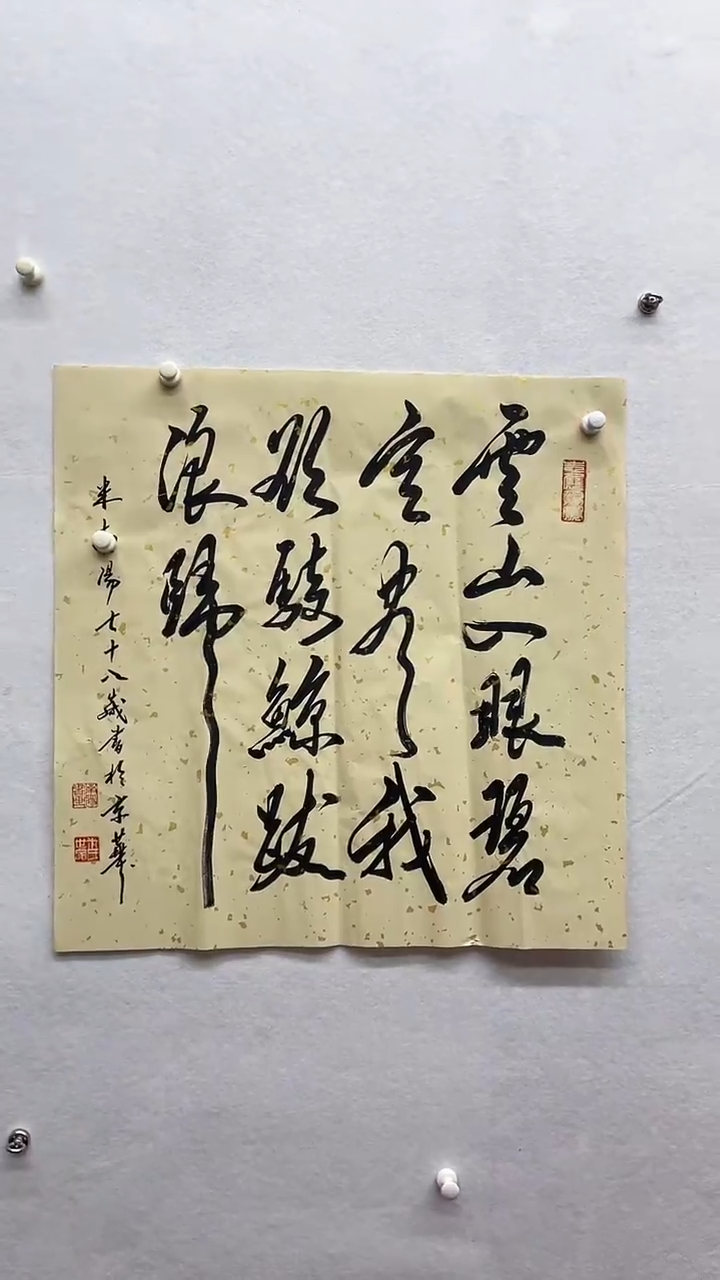 雲山入眼碧
空尽我
欲騎鯨跋
浪歸
米陽七十八歲書於京華